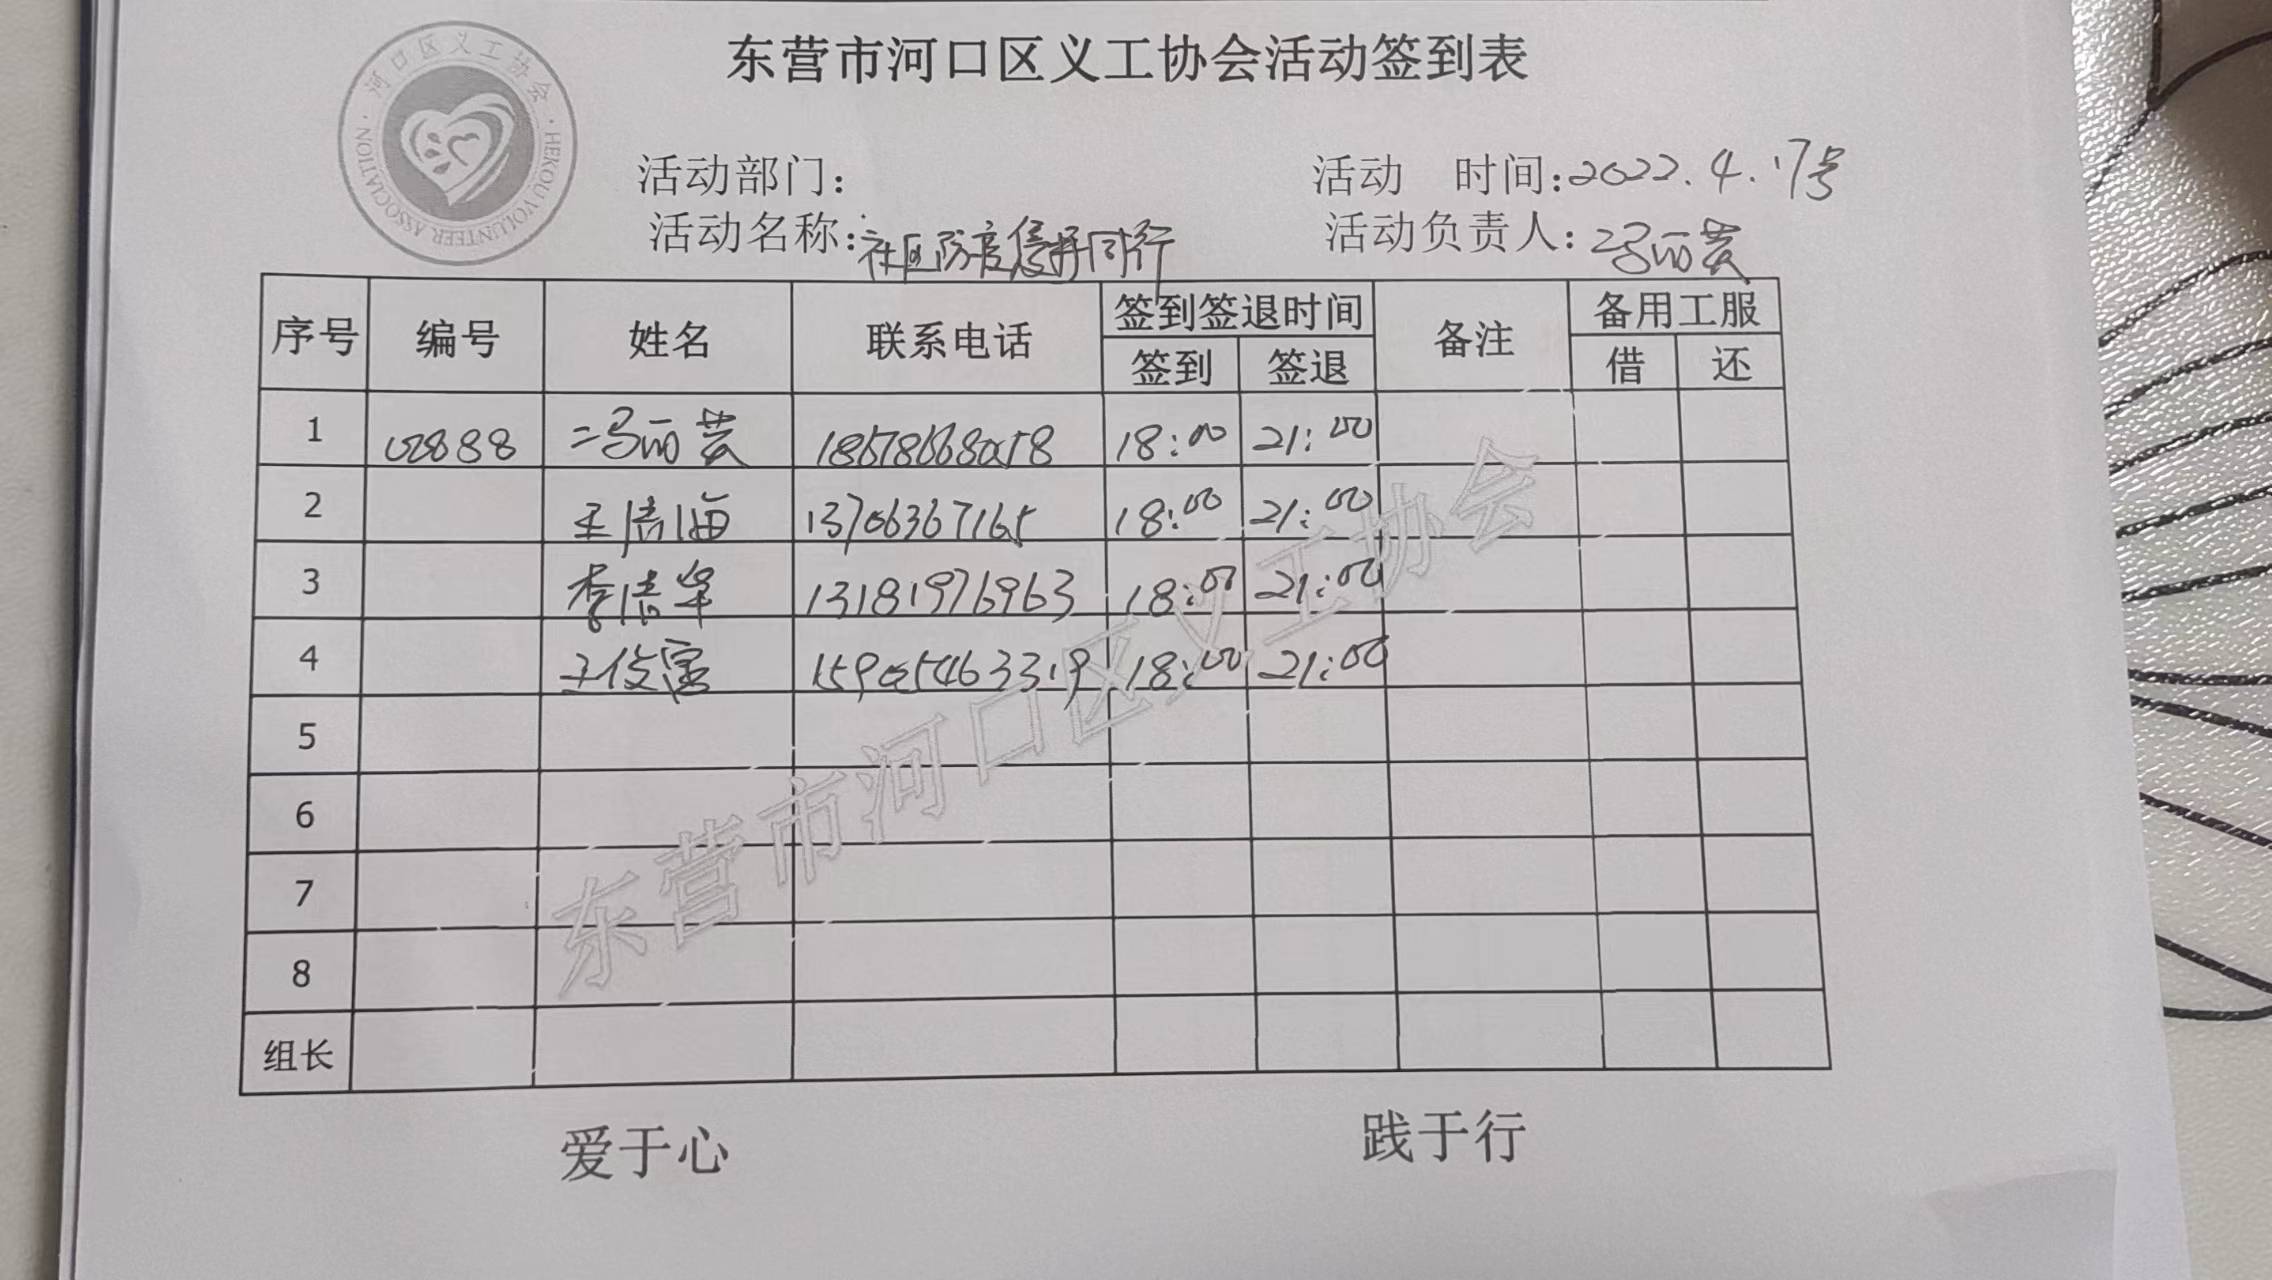 东营市河口区义工协会活动签到表
·河口区义工协会·
HEKOU VOLUNTEER ASSOCIATION
活动部门：
活动 时间：2022.4.17号
活动名称：社区防疫 同行
活动负责人：冯丽芸
序号 编号 姓名 联系电话 签到签退时间 备注 备用工服
签到 签退 借 还
1 02888 冯丽芸 18:00 21:00
2 13706367165 18:00 21:00
3 13181976963 18:00 21:00
4 15905463319 18:00 21:00
5
6
7
8
组长
东营市河口区义工协会
爱于心 践于行